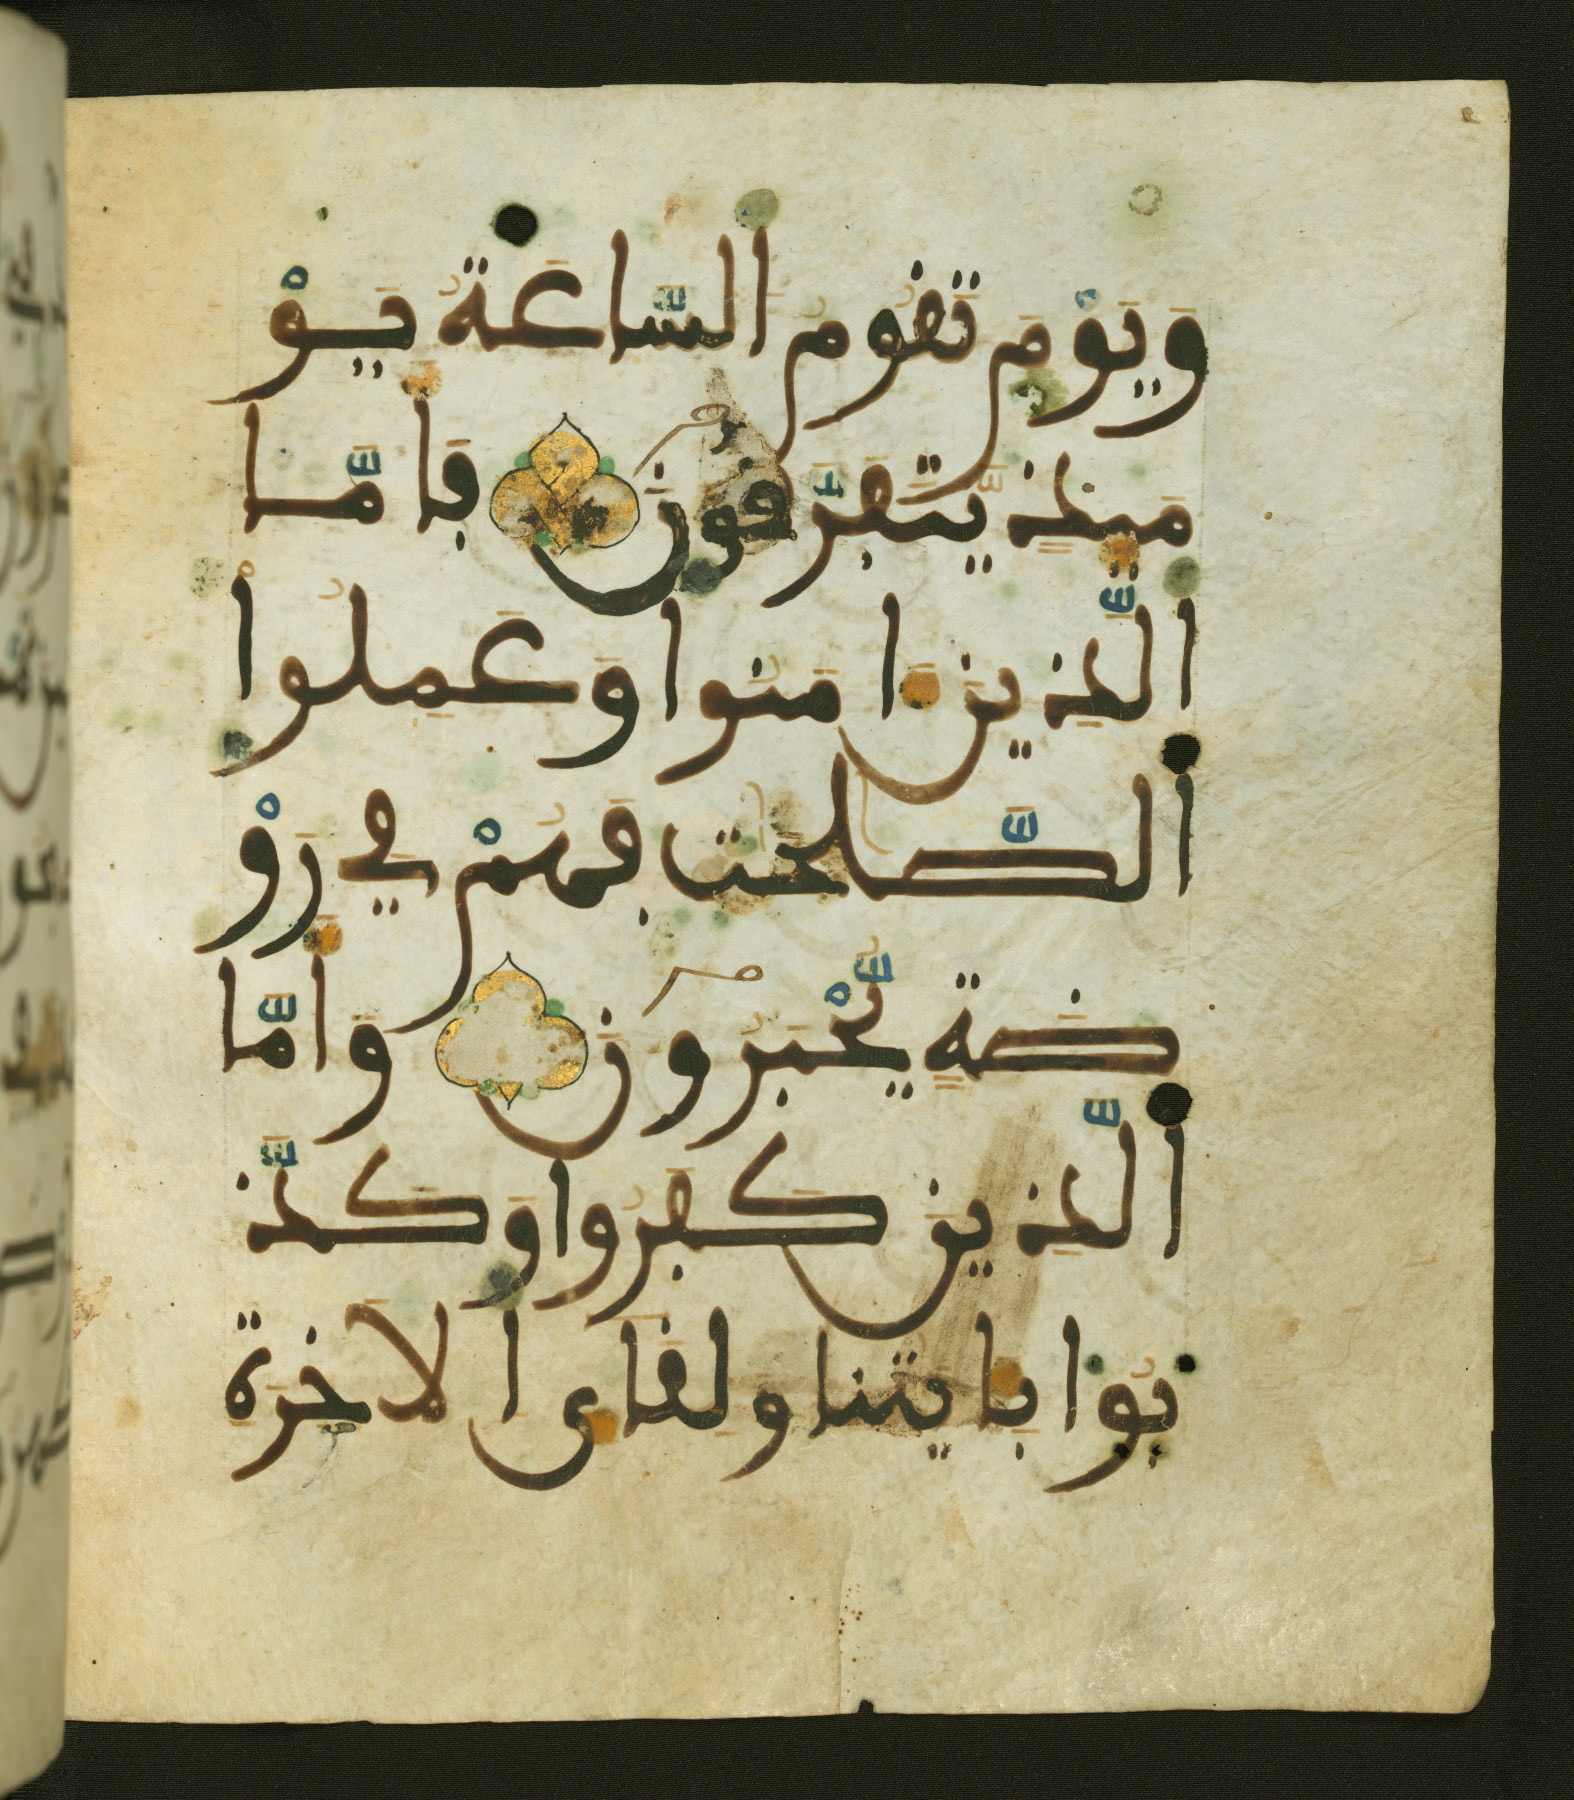 وَيَوْمَ تَقُومُ السَّاعَةُ يَوْ
مَئِذٍ يَّتَفَرَّقُونَ فَأَمَّا
الَّذِينَ ءَامَنُوا وَعَمِلُوا
الصَّٰلِحَٰتِ فَهُمْ فِي رَوْ
ضَةٍ يُّحْبَرُونَ وَأَمَّا
الَّذِينَ كَفَرُوا وَكَذَّ
بُوا بِـَٔايَٰتِنَا وَلِقَآئِ الَاخِرَةِ